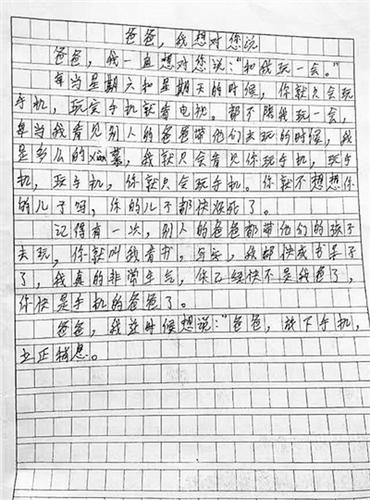 爸爸，我想对您说
爸爸，我一直想对您说："和我玩一会。"
每当星期六和星期天的时候，你就只会玩
手机，玩完手机就看电视。都不陪我玩一会，
每当我看见别人的爸爸带他们去玩的时候，我
是多么的xian慕，我就只会看见你玩手机，玩手
机，玩手机，你就只会玩手机。你就不想想你
的儿子吗，你的儿子都快没死了。
记得有一次，别人的爸爸都带他们的孩子
去玩，你就叫我看书，写字，我都快成书呆子
了，我真的非常生气，你已经快不是我爸了，
你快是手机的爸爸了。
爸爸，我这时候想说："爸爸，放下手机，
立正稍息。